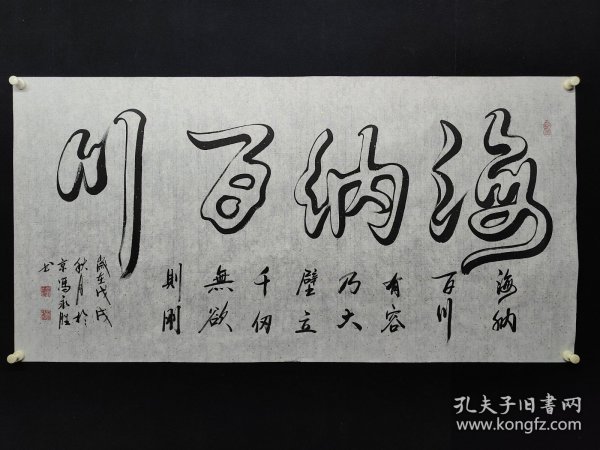 海納百川
海納
百川
有容
乃大
壁立
千仞
無欲
則剛
歲在戊戌
秋月於
京馮永胜
书
孔夫子旧書网
www.kongfz.com